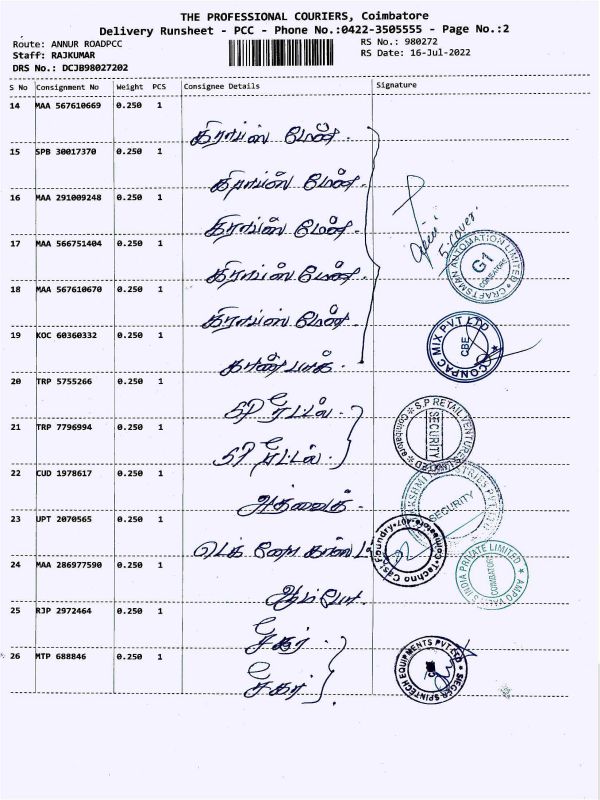 THE PROFESSIONAL COURIERS, Coimbatore
Delivery Runsheet - PCC - Phone No.:0422-3505555 - Page No.:2
Route: ANNUR ROADPCC
RS No.: 980272
Staff: RAJKUMAR
RS Date: 16-Jul-2022
DRS No.: DCJB98027202
S No Consignment No Weight PCS Consignee Details Signature
14 MAA 567610669 0.250 1
கிராப்ஸ் மேன்.
15 SPB 30017370 0.250 1
கிராப்ஸ் மேன்.
16 MAA 291009248 0.250 1
கிராப்ஸ் மேன்.
5 cover.
17 MAA 566751404 0.250 1
கிராப்ஸ் மேன்.
CRAFTSMAN AUTOMATION LIMITED
G1
COIMBATORE
18 MAA 567610670 0.250 1
கிராப்ஸ் மேன்.
19 KOC 60360332 0.250 1
கான்பாக்.
CONPAC MIX PVT LTD
CBE
20 TRP 5755266 0.250 1
SP ரீடெல்.
S.P RETAIL VENTURES LIMITED
Coimbatore
SECURITY
21 TRP 7796994 0.250 1
SP ரீடெல்.
22 CUD 1978617 0.250 1
SECURITY
23 UPT 2070565 0.250 1
Techno Cast Foundry
Coimbatore-407
24 MAA 286977590 0.250 1
ஆம்போ.
AMPO VALVES INDIA PRIVATE LIMITED
COIMBATORE
25 RJP 2972464 0.250 1
சீகர்
26 MTP 688846 0.250 1
சீகர்
SIEGER SPINTECH EQUIPMENTS PVT LTD